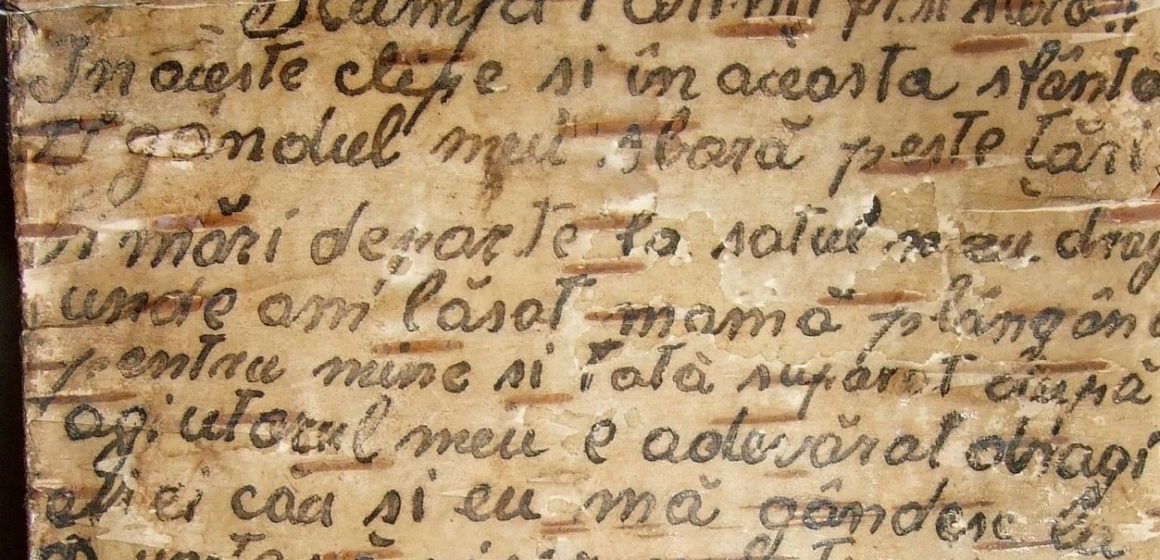 In aceste clipe si în aceasta sfântă
gandul meu sboră peste tări
mări departe la satul meu drag
unde am lăsat mamă plângân
pentru mine si tată supărat după
agiutorul meu e adevărat dragi
ei căa si eu mă gândesc la